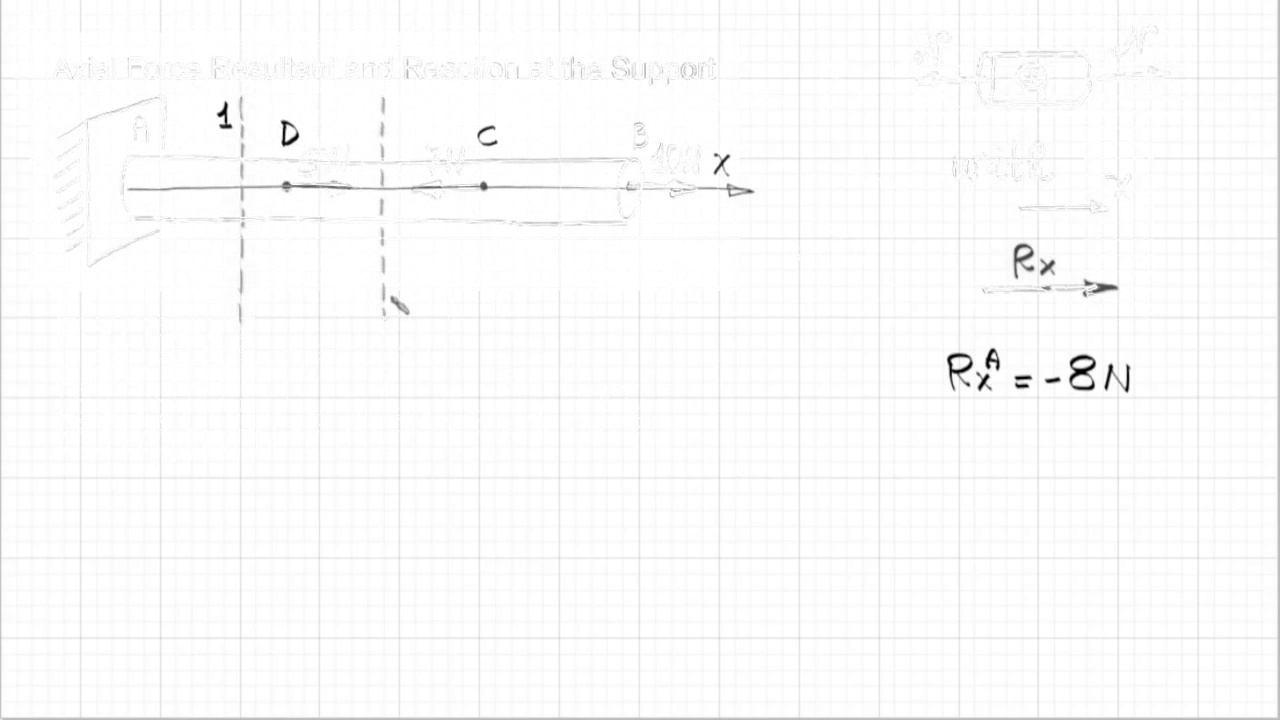 Axial Force Resultant and Reaction at the Support
A
1
D
5N
7N
C
B
10N
X
N
N
with
X
Rx
RxA = -8N